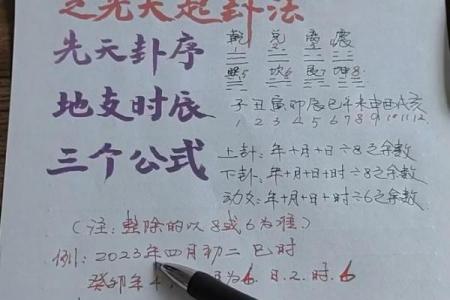 之先天起卦法
先天卦序
乾 兑 离 震
巽5 坎6 艮7 坤8
地支时辰
子丑寅卯辰巳午未申酉戌亥
1 2 3 4 5 6 7 8 9 10 11 12
三个公式
上卦：年+月+日÷8之余数
下卦：年+月+日+时÷8之余数
动爻：年+月+日+时÷6之余数
（注：整除的以8或6为准）
例：2023年四月初二 巳时
癸卯年4 为6 日.2.时.6